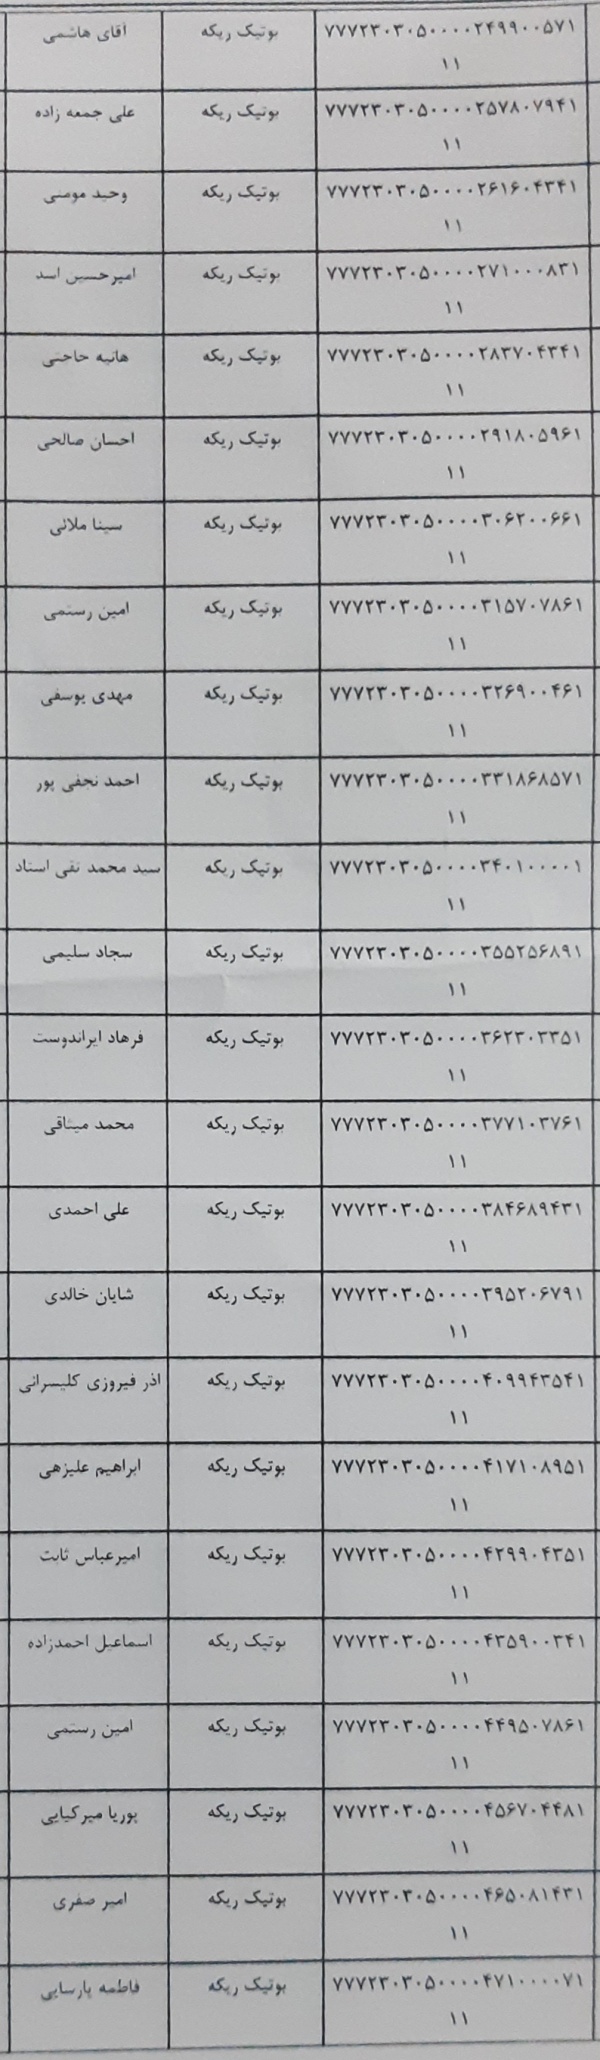 ۷۷۷۲۳۰۳۰۵۰۰۰۰۲۴۹۹۰۰۵۷۱ بوتیک ریکه آقای هاشمی
۱۱
۷۷۷۲۳۰۳۰۵۰۰۰۰۲۵۷۸۰۷۹۴۱ بوتیک ریکه علی جمعه زاده
۱۱
۷۷۷۲۳۰۳۰۵۰۰۰۰۲۶۱۶۰۴۳۴۱ بوتیک ریکه وحید مومنی
۱۱
۷۷۷۲۳۰۳۰۵۰۰۰۰۲۷۱۰۰۰۸۳۱ بوتیک ریکه امیرحسین اسد
۱۱
۷۷۷۲۳۰۳۰۵۰۰۰۰۲۸۳۷۰۴۳۴۱ بوتیک ریکه هانیه حاجتی
۱۱
۷۷۷۲۳۰۳۰۵۰۰۰۰۲۹۱۸۰۵۹۶۱ بوتیک ریکه احسان صالحی
۱۱
۷۷۷۲۳۰۳۰۵۰۰۰۰۳۰۶۲۰۰۶۶۱ بوتیک ریکه سینا ملائی
۱۱
۷۷۷۲۳۰۳۰۵۰۰۰۰۳۱۵۷۰۷۸۶۱ بوتیک ریکه امین رستمی
۱۱
۷۷۷۲۳۰۳۰۵۰۰۰۰۳۲۶۹۰۰۴۶۱ بوتیک ریکه مهدی یوسفی
۱۱
۷۷۷۲۳۰۳۰۵۰۰۰۰۳۳۱۸۶۸۵۷۱ بوتیک ریکه احمد نجفی پور
۱۱
۷۷۷۲۳۰۳۰۵۰۰۰۰۳۴۰۱۰۰۰۰۱ بوتیک ریکه سید محمد تقی استاد
۱۱
۷۷۷۲۳۰۳۰۵۰۰۰۰۳۵۵۲۵۶۸۹۱ بوتیک ریکه سجاد سلیمی
۱۱
۷۷۷۲۳۰۳۰۵۰۰۰۰۳۶۲۳۰۳۳۵۱ بوتیک ریکه فرهاد ایراندوست
۱۱
۷۷۷۲۳۰۳۰۵۰۰۰۰۳۷۷۱۰۳۷۶۱ بوتیک ریکه محمد میثاقی
۱۱
۷۷۷۲۳۰۳۰۵۰۰۰۰۳۸۴۶۸۹۴۳۱ بوتیک ریکه علی احمدی
۱۱
۷۷۷۲۳۰۳۰۵۰۰۰۰۳۹۵۲۰۶۷۹۱ بوتیک ریکه شایان خالدی
۱۱
۷۷۷۲۳۰۳۰۵۰۰۰۰۴۰۹۹۴۳۵۴۱ بوتیک ریکه اذر فیروزی کلیسرانی
۱۱
۷۷۷۲۳۰۳۰۵۰۰۰۰۴۱۷۱۰۸۹۵۱ بوتیک ریکه ابراهیم علیزهی
۱۱
۷۷۷۲۳۰۳۰۵۰۰۰۰۴۲۹۹۰۴۳۵۱ بوتیک ریکه امیرعباس ثابت
۱۱
۷۷۷۲۳۰۳۰۵۰۰۰۰۴۳۵۹۰۰۳۴۱ بوتیک ریکه اسماعیل احمدزاده
۱۱
۷۷۷۲۳۰۳۰۵۰۰۰۰۴۴۹۵۰۷۸۶۱ بوتیک ریکه امین رستمی
۱۱
۷۷۷۲۳۰۳۰۵۰۰۰۰۴۵۶۷۰۴۴۸۱ بوتیک ریکه پوریا میرکیایی
۱۱
۷۷۷۲۳۰۳۰۵۰۰۰۰۴۶۵۰۸۱۴۳۱ بوتیک ریکه امیر صفری
۱۱
۷۷۷۲۳۰۳۰۵۰۰۰۰۴۷۱۰۰۰۰۷۱ بوتیک ریکه فاطمه پارسایی
۱۱